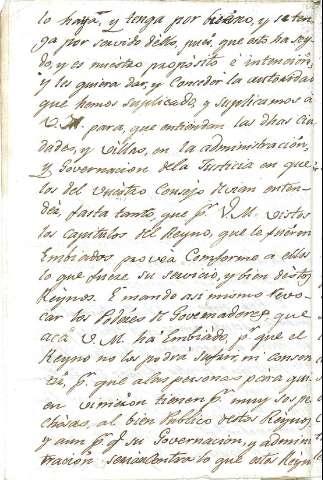 lo haya, y tenga por bueno, y se ten
ga por servido dello, pues, que esto ha sey
do, y es nuestro proposito é intencion,
y les quiera dar, y Conceder la autoridad
que hemos suplicado, y suplicamos a
V.M. para, que entiendan las dhas Ciu
dades, y villas, en la administración,
y Governacion dela Justicia en que
los del vuestro Consejo devian enten
der, fasta tanto, que pr. V.M. vistos
los Capitulos del Reyno, que le fueron
Embiados provea Comforme a ellos
lo que fuere su servicio, y bien destos
Reynos. E mando asi mismo revo
car los Poderes de Governadores que
acá V.M. há Embiado, pr. que el
Reyno no los podrá sufrir, ni consen
tir, pr. que a las personas para qui
en vinieron tienen pr. muy sospe
chosas, al bien Publico destos Reynos,
y aun pr. q su Governacion, y admini
tracion seria contra lo que estos Reyn